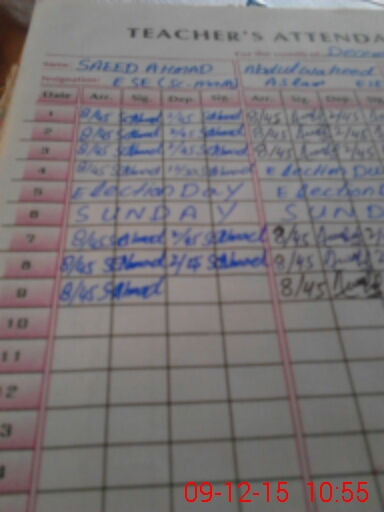 TEACHER'S ATTENDA
For the month of Decem
Name: SAEED AHMAD Abdul Waheed
Designation: ESE (Sc-math) Aslam ESE
Date Arr. Sig. Dep. Sig. Arr. Sig. Dep. S
1 8/45 SAhmad 2/45 SAhmad 8/45 2/45
2 8/45 SAhmad 2/45 SAhmad 8/45 2/45
3 8/45 SAhmad 2/45 SAhmad 8/45 2/45
4 8/45 SAhmad SAhmad Election Da
5 Election Day Election
6 SUNDAY SUND
7 8/45 SAhmad 2/45 SAhmad 8/45 2/
8 8/45 SAhmad 2/15 SAhmad 8/45 2
9 8/45 SAhmad 8/45
10
11
12
3
4
09-12-15 10:55